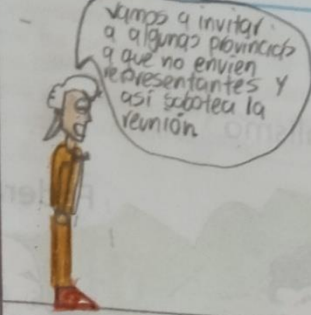 Vamos a invitar
a algunas provincias
a que no envien
representantes y
así sabotea la
reunión